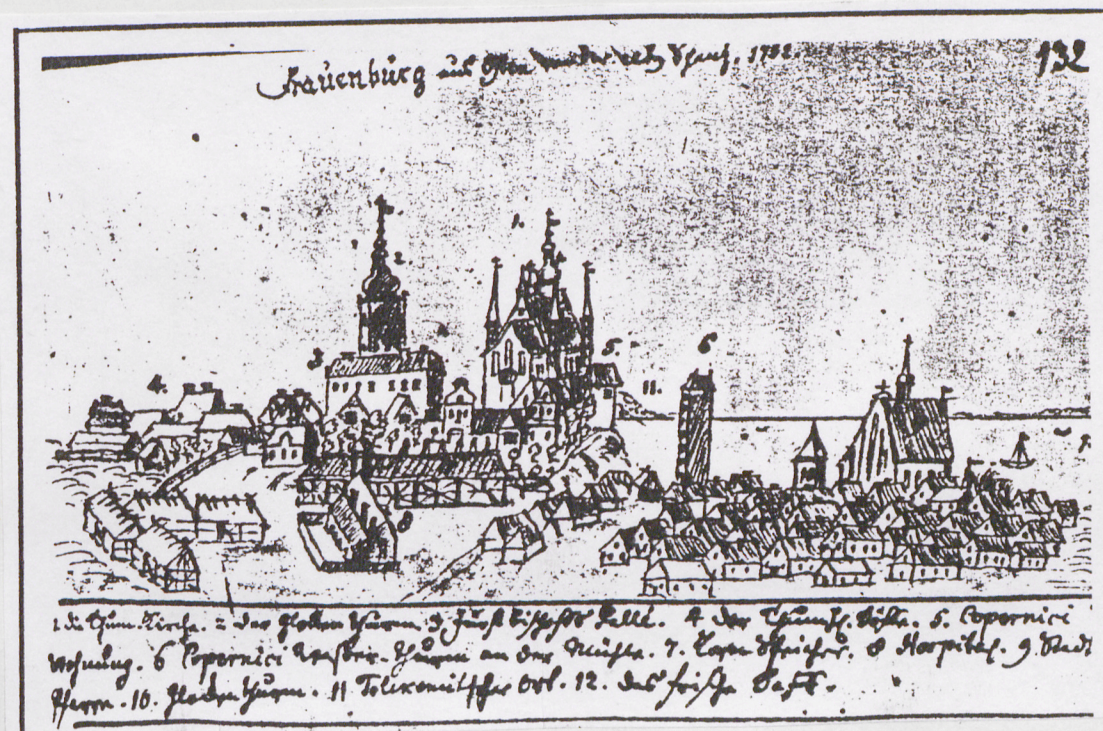 Frauenburg aus 1732
132
1.
2.
3
4.
5.
6
11.
8
1 die Thum-Kirche. 2 der Glocken Thurm. 3. Fürst bischoffs Palls. 4 der Thumh. Höffe. 5. Copernici
Wohnung. 6 Copernici Wasser-Thurm an der Mühle. 7. Korn Speicher. 8 Hospital. 9. Stadt
Pfarre. 10. Glocken Thurm. 11 Tolkemitscher Ort. 12. das frische Haff.